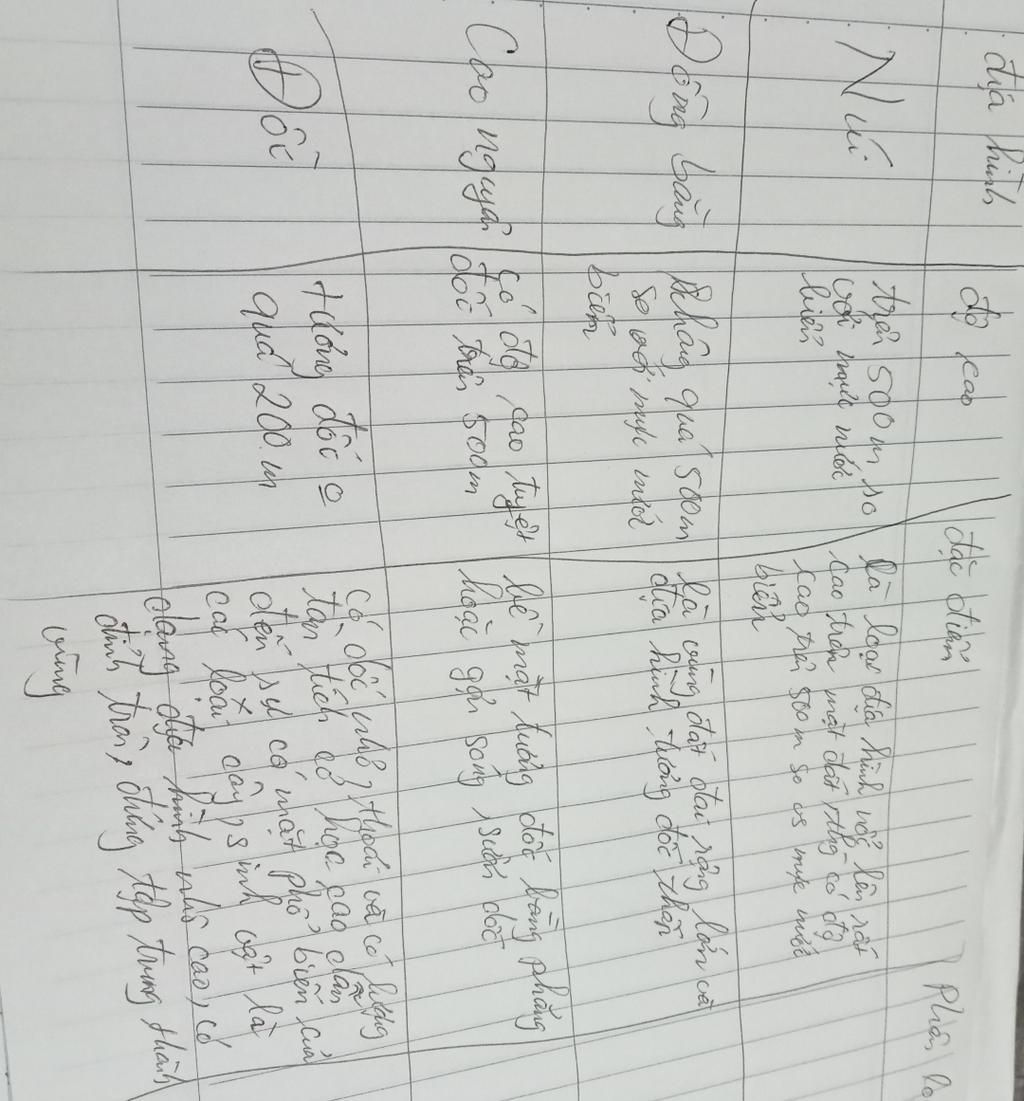 địa hình
độ cao
đặc điểm
Phân lo
Núi
trên 500 m so
với mực nước
biển
là loại địa hình nổi lên rất
cao trên mặt đất thg có độ
cao trên 500 m so vs mực nước
biển
Đồng bằng
không quá 500m
so với mực nước
biển
là vùng đất đai rộng lớn và
địa hình tương đối thấp
Cao nguyên
có độ cao tuyệt
đối trên 500m
bề mặt tương đối bằng phẳng
hoặc gợn sóng, sườn dốc
Đồi
tương đối o
quá 200 m
có dốc nhỏ, thoải và có lượng
tàn tích cơ học cao dẫn
đến sự có mặt phổ biến của
các loại cây, sinh vật là
dạng địa hình nhô cao, có
đỉnh tròn, đứng tập trung thành
vùng